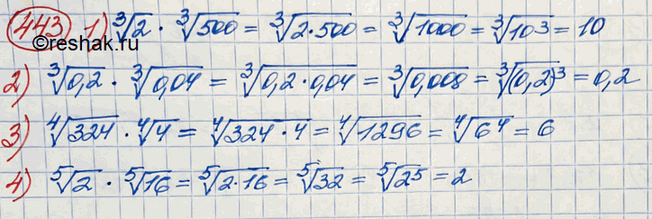 443 1) ∛2 · ∛500 = ∛(2·500) = ∛1000 = ∛10³ = 10
©reshak.ru
2) ∛0,2 · ∛0,04 = ∛(0,2 · 0,04) = ∛0,008 = ∛(0,2)³ = 0,2
3) ∜324 · ∜4 = ∜(324 · 4) = ∜1296 = ∜6⁴ = 6
4) ⁵√2 · ⁵√16 = ⁵√(2·16) = ⁵√32 = ⁵√2⁵ = 2